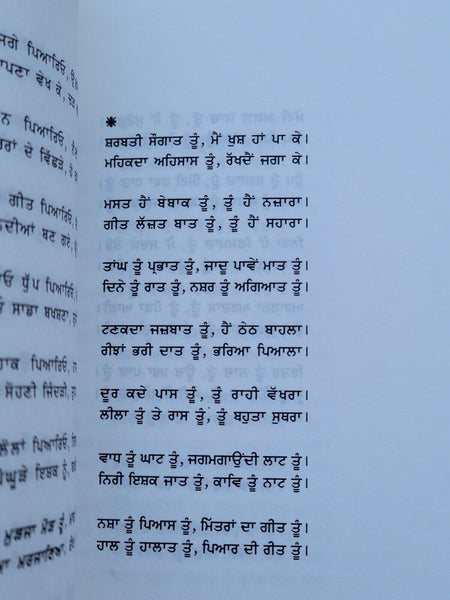 ਪਿਆਰਿਓ,
ਵੇਖ ਕੇ,
ਪਿਆਰਿਓ,
ਦੇ ਵਿੱਛੜੇ,
ਗੀਤ ਪਿਆਰਿਓ,
ਬਣ ਗਏ,
ਧੁੱਪ ਪਿਆਰਿਓ,
ਸਾਡਾ ਬਖਸ਼ਣਾ,
ਪਿਆਰਿਓ,
ਸੋਹਣੀ ਜਿੰਦੜੀ,
ਪਿਆਰਿਓ,
ਇਸ਼ਕ ਨੂੰ,
ਮੁੜਜਾ ਮੋੜ ਤੂੰ,
ਮਰਜਾਣਿਆ,
*
ਸ਼ਰਬਤੀ ਸੌਗਾਤ ਤੂੰ, ਮੈਂ ਖੁਸ਼ ਹਾਂ ਪਾ ਕੇ।
ਮਹਿਕਦਾ ਅਹਿਸਾਸ ਤੂੰ, ਰੱਖਦੈਂ ਜਗਾ ਕੇ।
ਮਸਤ ਹੈਂ ਬੇਬਾਕ ਤੂੰ, ਤੂੰ ਹੈਂ ਨਜ਼ਾਰਾ।
ਗੀਤ ਲੱਜ਼ਤ ਬਾਤ ਤੂੰ, ਤੂੰ ਹੈਂ ਸਹਾਰਾ।
ਤਾਂਘ ਤੂੰ ਪ੍ਰਭਾਤ ਤੂੰ, ਜਾਦੂ ਪਾਵੇਂ ਮਾਤ ਤੂੰ।
ਦਿਨੇ ਤੂੰ ਰਾਤ ਤੂੰ, ਨਸ਼ਰ ਤੂੰ ਅਗਿਆਤ ਤੂੰ।
ਟਣਕਦਾ ਜਜ਼ਬਾਤ ਤੂੰ, ਹੈਂ ਠੇਠ ਬਾਹਲਾ।
ਰੀਝਾਂ ਭਰੀ ਦਾਤ ਤੂੰ, ਭਰਿਆ ਪਿਆਲਾ।
ਦੂਰ ਕਦੇ ਪਾਸ ਤੂੰ, ਤੂੰ ਰਾਹੀ ਵੱਖਰਾ।
ਲੀਲਾ ਤੂੰ ਤੇ ਰਾਸ ਤੂੰ, ਤੂੰ ਬਹੁਤਾ ਸੁਥਰਾ।
ਵਾਧ ਤੂੰ ਘਾਟ ਤੂੰ, ਜਗਮਗਾਉਂਦੀ ਲਾਟ ਤੂੰ।
ਨਿਰੀ ਇਸ਼ਕ ਜਾਤ ਤੂੰ, ਕਾਵਿ ਤੂੰ ਨਾਟ ਤੂੰ।
ਨਸ਼ਾ ਤੂੰ ਪਿਆਸ ਤੂੰ, ਮਿੱਤਰਾਂ ਦਾ ਗੀਤ ਤੂੰ।
ਹਾਲ ਤੂੰ ਹਾਲਾਤ ਤੂੰ, ਪਿਆਰ ਦੀ ਰੀਤ ਤੂੰ।